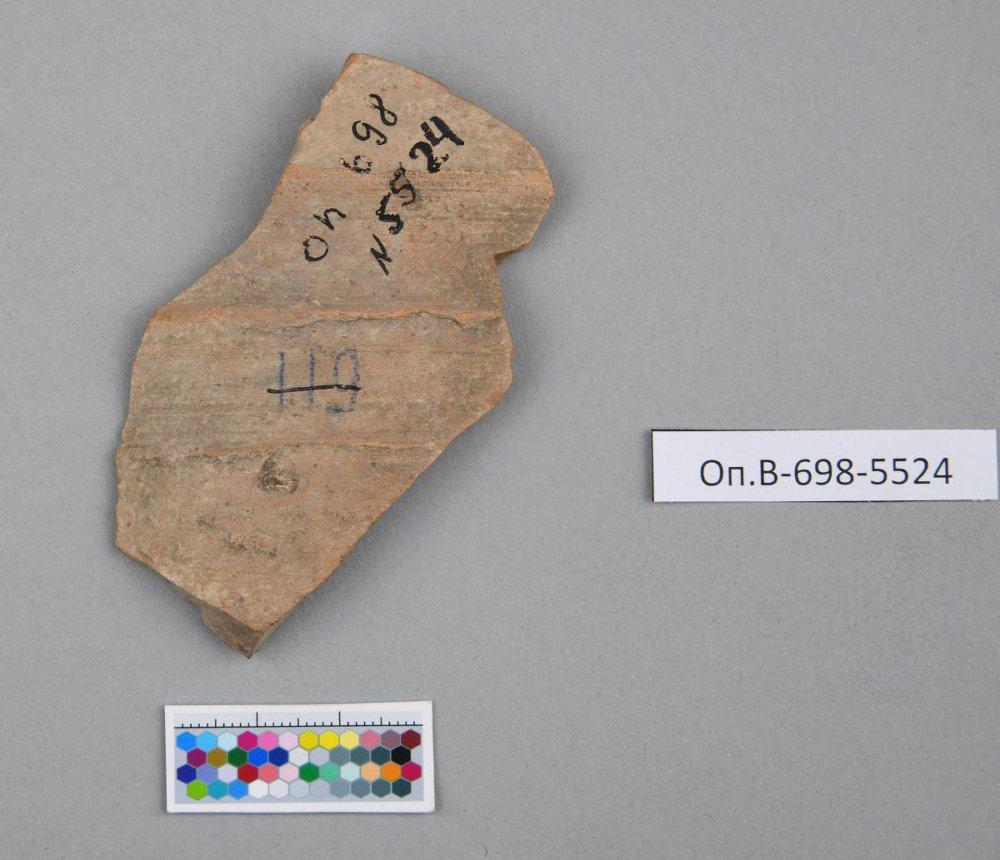 Оп 698
N 5524
119
Оп.В-698-5524